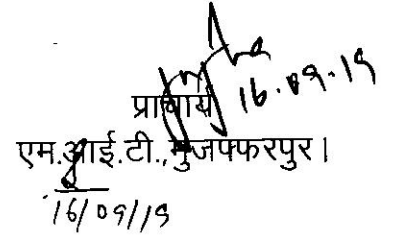 16.09.19
प्राचार्य
एम.आई.टी.,मुजफ्फरपुर।
16/09/19